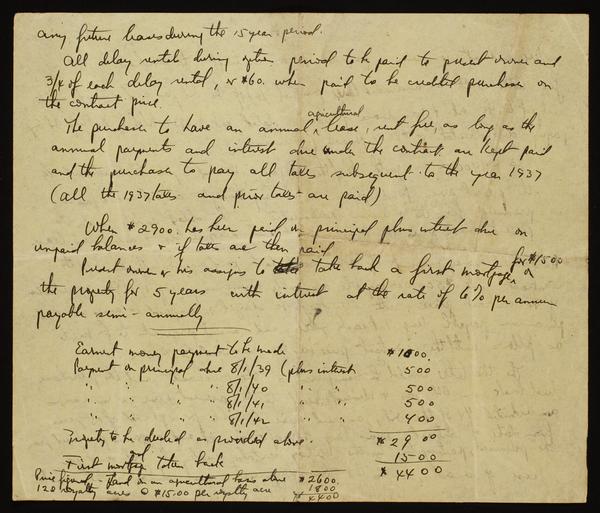 any future leases during the 15 year period.
All delay rentals during option period to be paid to present owner and
3/4 of each delay rental, or $60. when paid to be credited purchaser on
the contract price.
agricultural
The purchaser to have an annual lease, rent free, as long as the
annual payments and interest due under the contract are kept paid
and the purchaser to pay all taxes subsequent to the year 1937
(all the 1937 taxes and prior taxes are paid)
When $2900. has been paid on principal plus interest due on
unpaid balances & if taxes are then paid
for $1500
Present owner or his assigns to take back a first mortgage, on
the property for 5 years with interest at the rate of 6% per annum
payable semi-annually
Earnest money payment to be made $1000.
Payment on principal due 8/1/39 (plus interest 500
" " " " 8/1/40 " " 500
" " " " 8/1/41 " " 500
" " " " 8/1/42 " " 400
Property to be deeded as provided above. $2900
First mortg taken back 1500
$4400
Price figured - Land on an agricultural basis alone $2600.
120 royalty acres @ $15.00 per royalty acre 1800
$4400